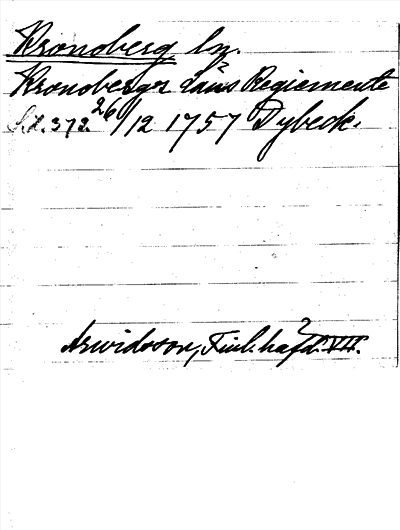 Kronoberg ln.
Kronoberger Läns Regiemente
S.d. 373. 26/12 1757 Dybeck.
Arwidsson, Finl. hafd. VII.